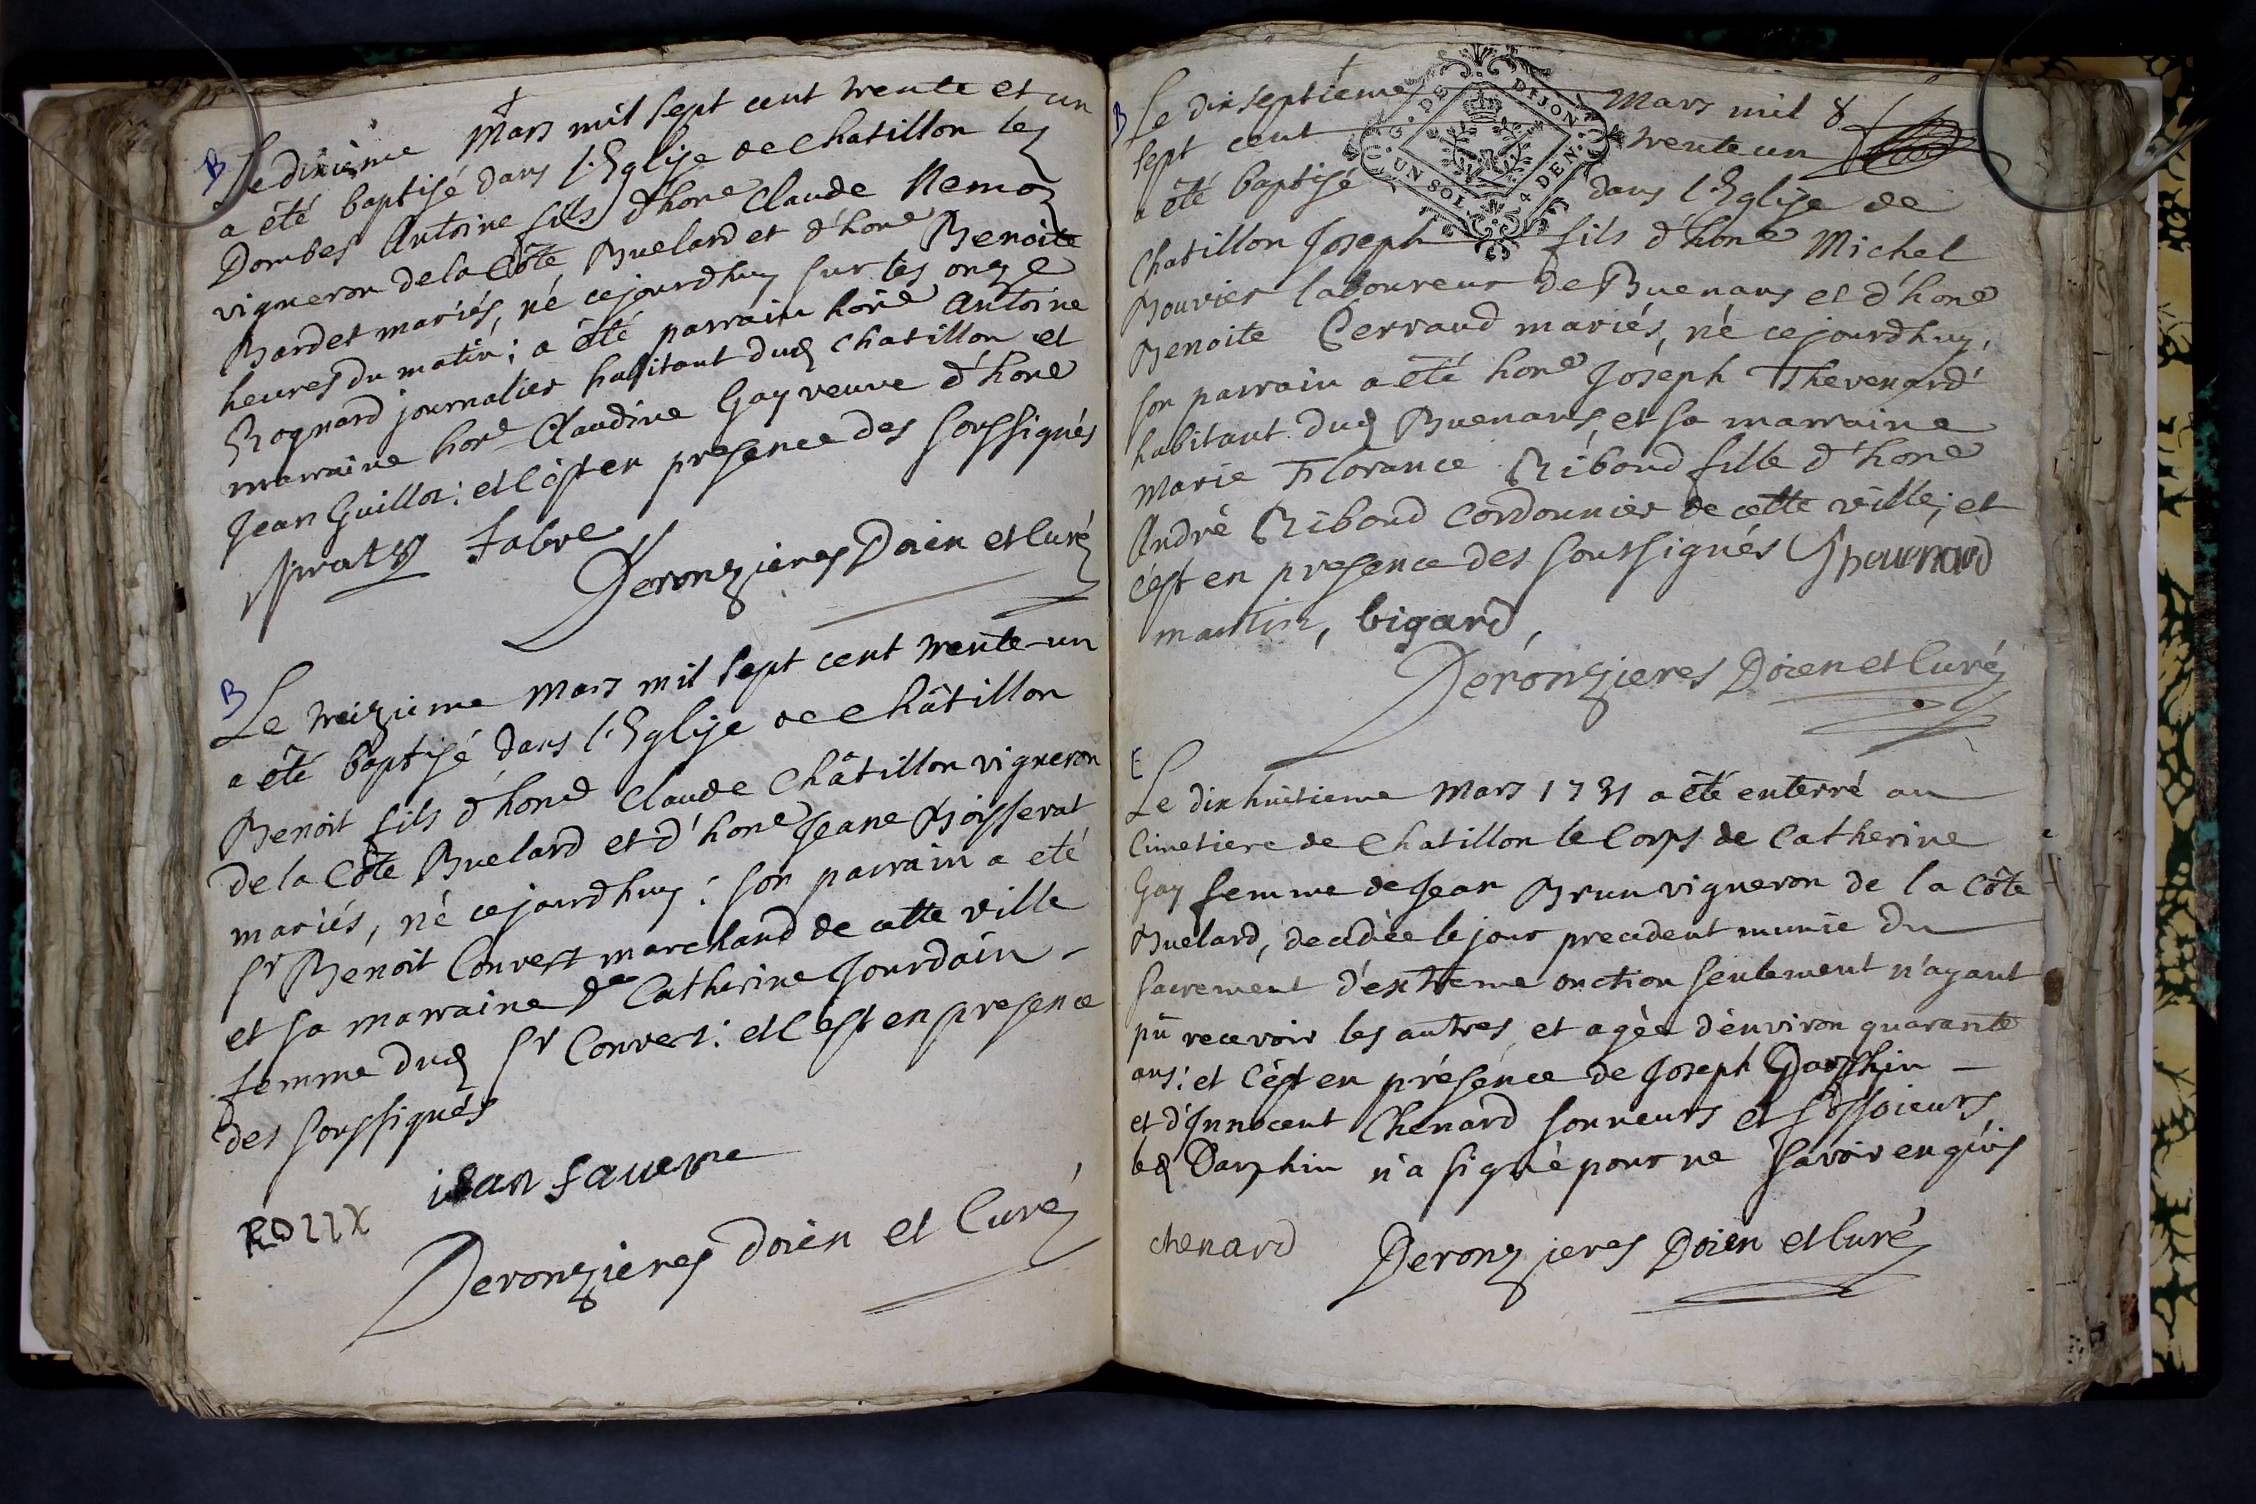 B
Le dixième Mars mil sept cent trente et un
a été baptisé dans l'Eglise de Chatillon les
Dombes Antoine fils d'hone Claude Nemoz
vigneron de la Côte Buelard et d'hone Benoite
Bardet mariés, né cejourdhuy sur les onze
heures du matin; a été parrain hone Antoine
Rognard journalier habitant dud Chatillon et
marraine hone Claudine Gay veuve d'hone
Jean Guillot: et c'est en presence des soussignés
Prat Fabre
Deronzieres Doien et Curé
B
Le treizieme Mars mil sept cent trente-un
a été baptisé dans l'Eglise de Châtillon
Benoit fils d'hone Claude Châtillon vigneron
de la Côte Buelard et d'hone Jeane Boisserat
mariés, né cejourdhuy: son parrain a eté
Sr Benoit Convert marchand de cette ville
et sa marraine De Catherine Jourdain -
femme dud Sr Convert: et c'est en presence
des soussignés
ROUX iean faverre
Deronzieres Doien et Curé
G. DE DIJON
UN SOL. 4 DEN.
B
Le dixseptieme Mars mil
sept cent trente un
a été baptisé dans l'Eglise de
Chatillon Joseph fils d'hone Michel
Bouvier laboureur de Buenans et d'hone
Benoite Perraud mariés, né cejourdhuy,
son parrain a été hone Joseph Thevenard
habitant dud Buenans, et sa marraine
Marie Florance Riboud fille d'hone
André Riboud Cordonnier de cette ville; et
c'est en presence des soussignés Thevenard
martin, bigard,
Deronzieres Doien et Curé
E
Le dixhuitieme Mars 1731 a été enterré au
Cimetiere de Chatillon le Corps de Catherine
Gay femme de Jean Brun vigneron de la Côte
Buelard, decedée le jour precedent munie du
sacrement d'extreme onction seulement n'ayant
pû recevoir les autres, et agée d'environ quarante
ans: et c'est en présence de Joseph Darphin -
et d'Innocent Chenard sonneurs et fossoieurs
led Darphin n'a signé pour ne savoir enquis
chenard Deronzieres Doien et Curé